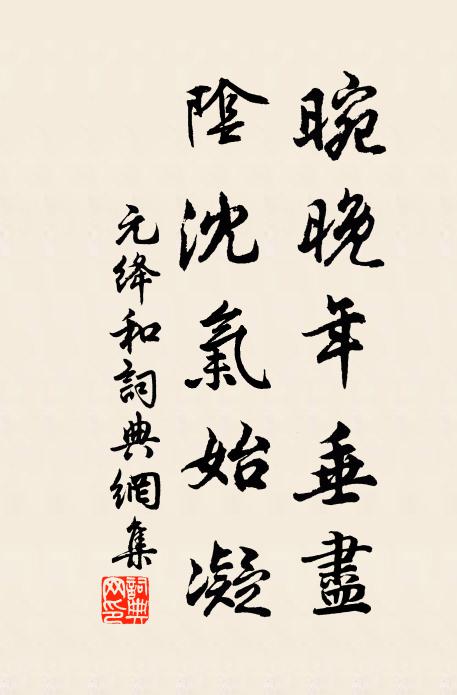 晼晚年垂盡
陰沈氣始凝
元绛和詞典網集
詞典网印